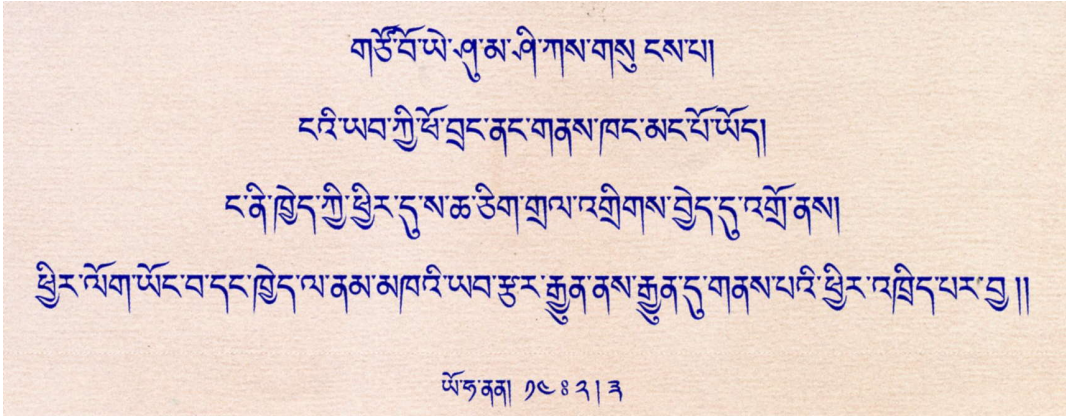 གཙོ་བོ་ཡེ་ཤུ་མ་ཤི་ཀས་གསུ ངས་པ།
ངའི་ཡབ་ཀྱི་ཕོ་བྲང་ནང་གནས་ཁང་མང་པོ་ཡོད།
ང་ནི་ཁྱེད་ཀྱི་ཕྱིར་དུ་ས་ཆ་ཅིག་གྲལ་འགྲིགས་བྱེད་དུ་འགྲོ་ནས།
ཕྱིར་ལོག་ཡོང་བ་དང་ཁྱེད་ལ་ནམ་མཁའི་ཡབ་རྩར་རྒྱུན་ནས་རྒྱུན་དུ་གནས་པའི་ཕྱིར་འཁྲིད་པར་བྱ །།
ཡོ་ཧ་ནན། ༡༤ ༔ ༢ ། ༣